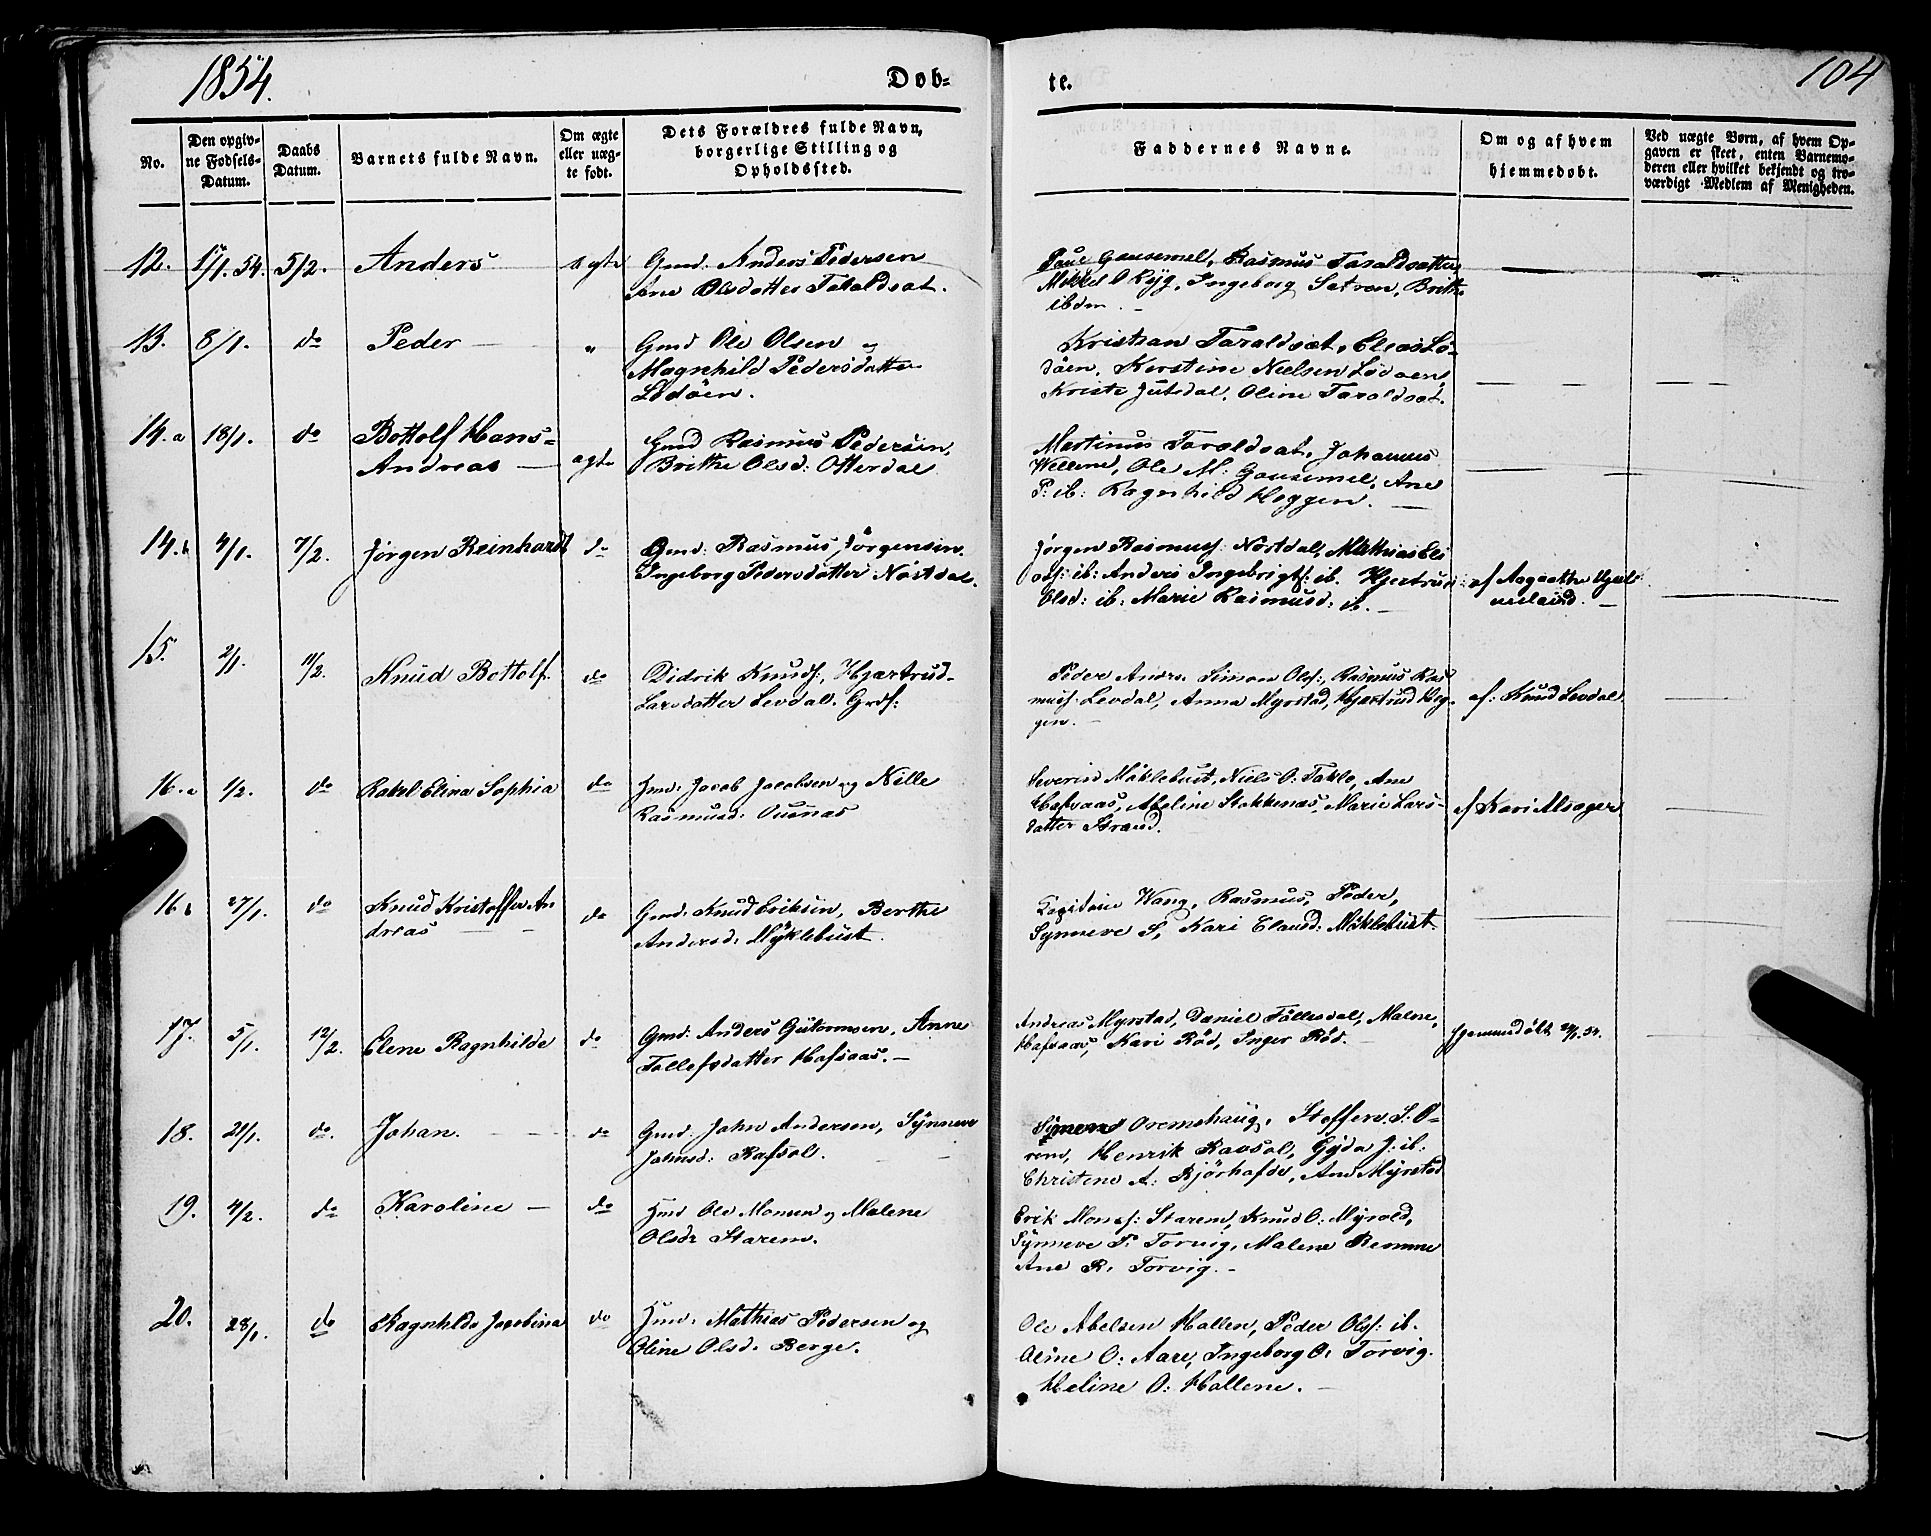 1854.
Døb-
te.
104
No.
Den opgiv-
ne Fødsels-
Datum.
Daabs
Datum.
Barnets fulde Navn.
Om ægte
eller uæg-
te født.
Dets Forældres fulde Navn,
borgerlige Stilling og
Opholdssted.
Faddernes Navne.
Om og af hvem
hjemmedøbt.
Ved uægte Børn, af hvem Op-
gaven er skeet, enten Barnemo-
deren eller hvilket bekjendt og tro-
værdigt Medlem af Menigheden.
12. 1/1. 54. 5/2. Anders ægte
Gmd: Anders Pedersen
Ane Olsdatter Taraldsat.
Gausemel, Rasmus Taraldsatter
Mikkel Ryg, Ingeborg Satren, Brithe
ibdm.
13. 8/1. do Peder "
Gmd Ole Olsen og
Magnhild Pedersdatter
Lødøen.
Kristian Taraldsæt, Elias Lø-
døen, Kerstine Nielsen Lødøen,
Kriste Jutsdal, Oline Taraldsæt.
14.a 18/1. do Bottolf Hans-
Andreas ægte
Gmd Rasmus Pedersen,
Brithe Olsd: Otterdal
Martinus Taraldsat, Johannes
Wellene, Ole M: Gausemel, Ane
P: ib: Ragnhild Heggen.
14.b 4/1. 7/2. Jørgen Reinhardt do
Gmd: Rasmus Jørgensen.
Ingeborg Pedersdatter Nøstdal.
Jørgen Rasmusf: Nøstdal, Mathias Eli
asf: ib: Anders Ingebrigtf: ib. Hjertrud
Olsd: ib: Marie Rasmusd: ib.
af Aagaathe
15. 2/1. 11/2. Knud Bottolf do
Didrik Knudf:, Hjertrud
Larsdatter Levdal. Grdf:
Peder Andr. Simon Olsf:, Rasmus Ras
musf: Levdal, Anna Myrstad, Hjertrud Heg-
gen.
af: Knud Levdal
16.a 1/2. do Rakel Elina Sophia do
Hmd: Jacob Jacobsen og Nille
Rasmusd: Ousnas
Severin Mäklebust, Niels O: Takle, Ane
Hafsaas, Abeline Stokkenas, Marie Lars-
datter Strand.
af Kari Alsager
16.b 27/1. do Knud Kristoffer An
dreas do
Gmd. Knud Eriksen, Berthe
Andersd: Myklebust.
Wang, Rasmus, Peder,
Synneve S, Kari Clausd: Mäklebust.
17. 5/1. 12/2. Elene Ragnhilde do
Gmd: Anders Guttormsen, Anne
Tollefsdatter Hafsaas.
Andreas Myrstad, Daniel Föllesdal, Malene,
Hafsaas, Kari Röd, Inger Röd.
hjemmedöbt 24/1. 54.
18. 21/1. do. Johan. do
Gmd. John Andersen, Synneve
Johnsd: Rafsal.
Oremshaug, Steffen S: O-
rem, Henrik Ravsal, Gyda J: ib:
Christene A: Bjørhafde, Ane Myrstad
19. 4/2. do Karoline do
Hmd Ole Monsen og Malene
Olsd: Starem.
Erik Monsf: Starem, Knud O: Myrold,
Synneve P: Torvig, Malene Remme
Ane R: Torvig.
20. 28/1. do Ragnhilde Jacobina do
Hmd: Mathias Pedersen og
Oline Olsd: Berge.
Ole Abelsen Hallen, Peder Olsf: ib.
Oline O: Aare, Ingeborg O: Torvig.
Heline O: Hallene.